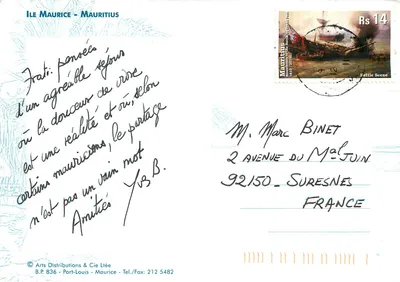 ILE MAURICE - MAURITIUS
Frat. pensées
d'un agréable séjour
où la douceur de vivre
est une réalité et où, selon
certains mauriciens, le partage
n'est pas un vain mot
Amitiés
Yves B.
Rs 14
Mauritius
Battle Scene
M. Marc BINET
2 AVENUE DU Mal JUIN
92150 - SURESNES
FRANCE
© Arts Distributions & Cie Ltée
B.P. 836 - Port-Louis - Maurice - Tel./Fax: 212 5482